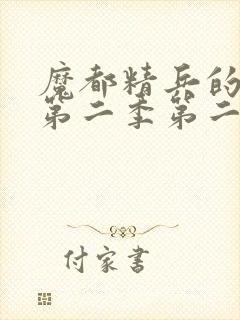 魔都精兵的
第二季第二
付家书